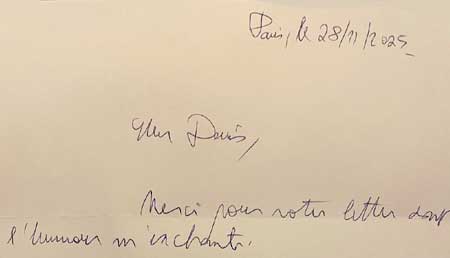 Paris, le 28/11/2025
Cher Denis,
Merci pour votre lettre dont
l'humour m'enchante.